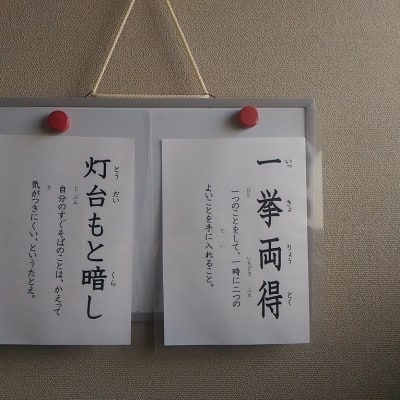 一挙両得
いっ きょ りょう とく
一つのことをして、一時に二つの
ひと いちどき ふた
よいことを手に入れること。
て い
灯台もと暗し
とう だい くら
自分のすぐそばのことは、かえって
じ ぶん
気がつきにくい、というたとえ。
き